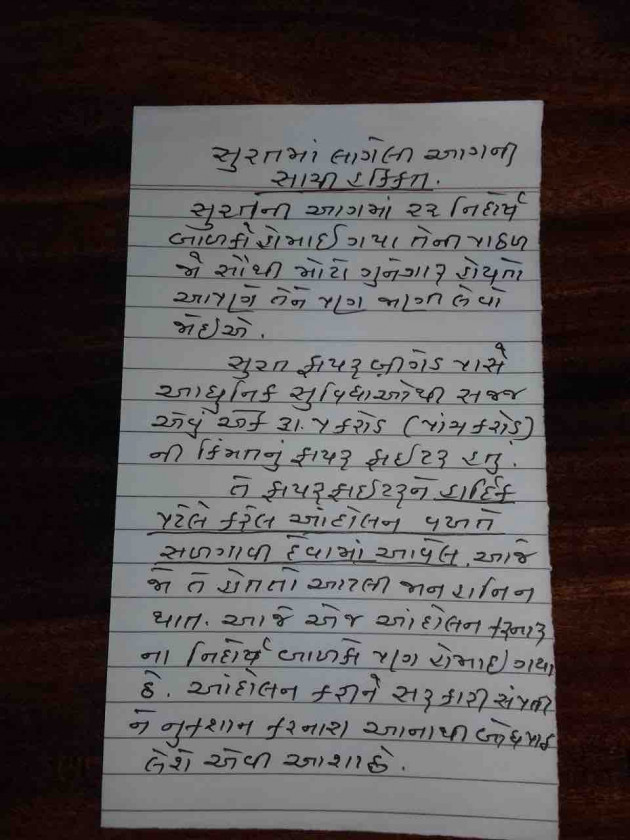 સુરતમાં લાગેલી આગની
સાચી હકિકત.
સુરતની આગમાં ૨૨ નિર્દોષ
બાળકો હોમાઈ ગયા તેની પાછળ
જે સૌથી મોટો ગુનેગાર હોયતો
આપણે તેને પણ જાણી લેવો
જોઇએ.
સુરત ફાયર બ્રીગેડ પાસે
આધુનિક સુવિધાઓથી સજ્જ
એવું એક રૂા. ૫ કરોડ (પાંચ કરોડ)
ની કિંમતનું ફાયર ફાઈટર હતુ.
તે ફાયરફાઈટરને હાર્દિક
પટેલે કરેલ આંદોલન વખતે
સળગાવી દેવામાં આવેલ. આજે
જો તે હોતતો આટલી જાન હાનિ ન
થાત. આજે એજ આંદોલન કરનાર
ના નિર્દોષ બાળકો પણ હોમાઇ ગયા
છે. આંદોલન કરીને સરકારી સંપતી
ને નુકશાન કરનારા આનાથી બોધપાઠ
લેશે એવી આશા છે.